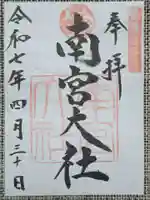 奉拝
南宮大社
令和七年四月三十日